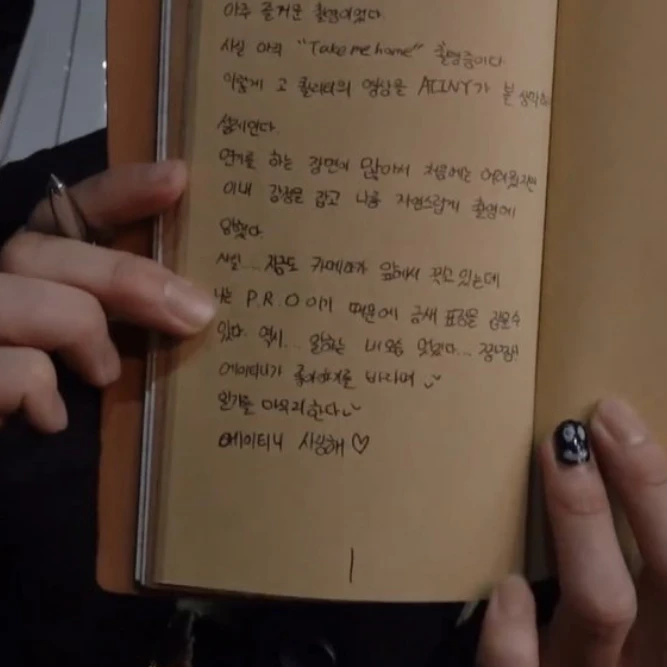 아주 즐거운 촬영이었다.
사실 아직 "Take me home" 촬영중이다.
이렇게 고 퀄리티의 영상을 ATINY가 볼 생각하니
설레인다.
연기를 하는 장면이 많아서 처음에는 어려웠지만
이내 감정을 잡고 나름 자연스럽게 촬영에
임했다.
사실... 지금도 카메라가 앞에서 찍고 있는데
나는 P.R.O이기 때문에 금새 표정을 감출수
있다. 역시... 일하는 내모습 멋있다... 장난임!
에이티니가 좋아하기를 바라며
일기를 마무리한다
에이티니 사랑해♡
1